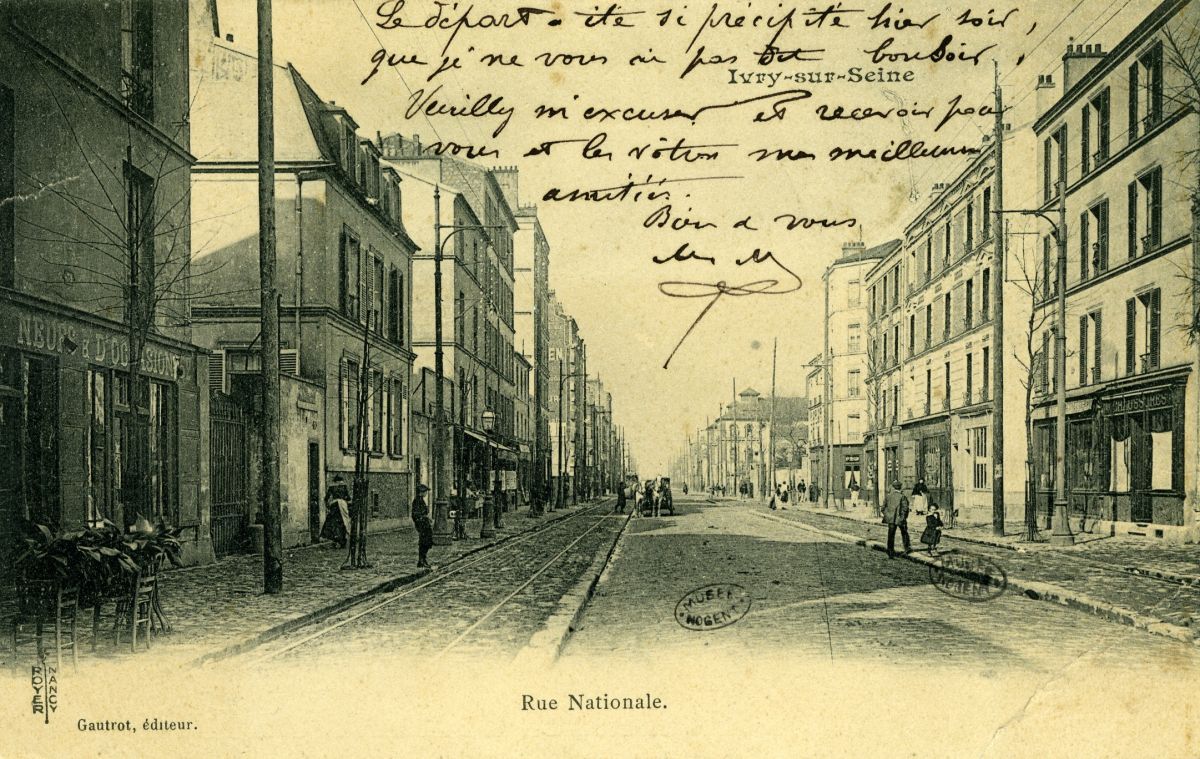 Le départ a été si précipité hier soir,
que je ne vous ai pas dit bonsoir,
Ivry-sur-Seine
Veuilly m'excuser et recevoir pour
vous et les vôtres mes meilleures
amitiés.
Bien à vous
NEUFS & D'OCCASIONS
MUSEE NOGENT
MUSEE NOGENT
Rue Nationale.
ROYER NANCY
Gautrot, éditeur.